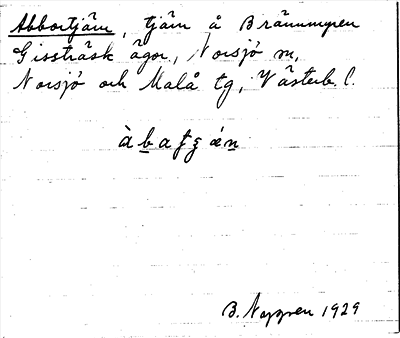 Abbortjärn, tjärn å Brännmyren
Gissträsk ägor, Norsjö sn,
Norsjö och Malå tg, Västerb. l.
àbatʒǽn
B. Noggren 1929